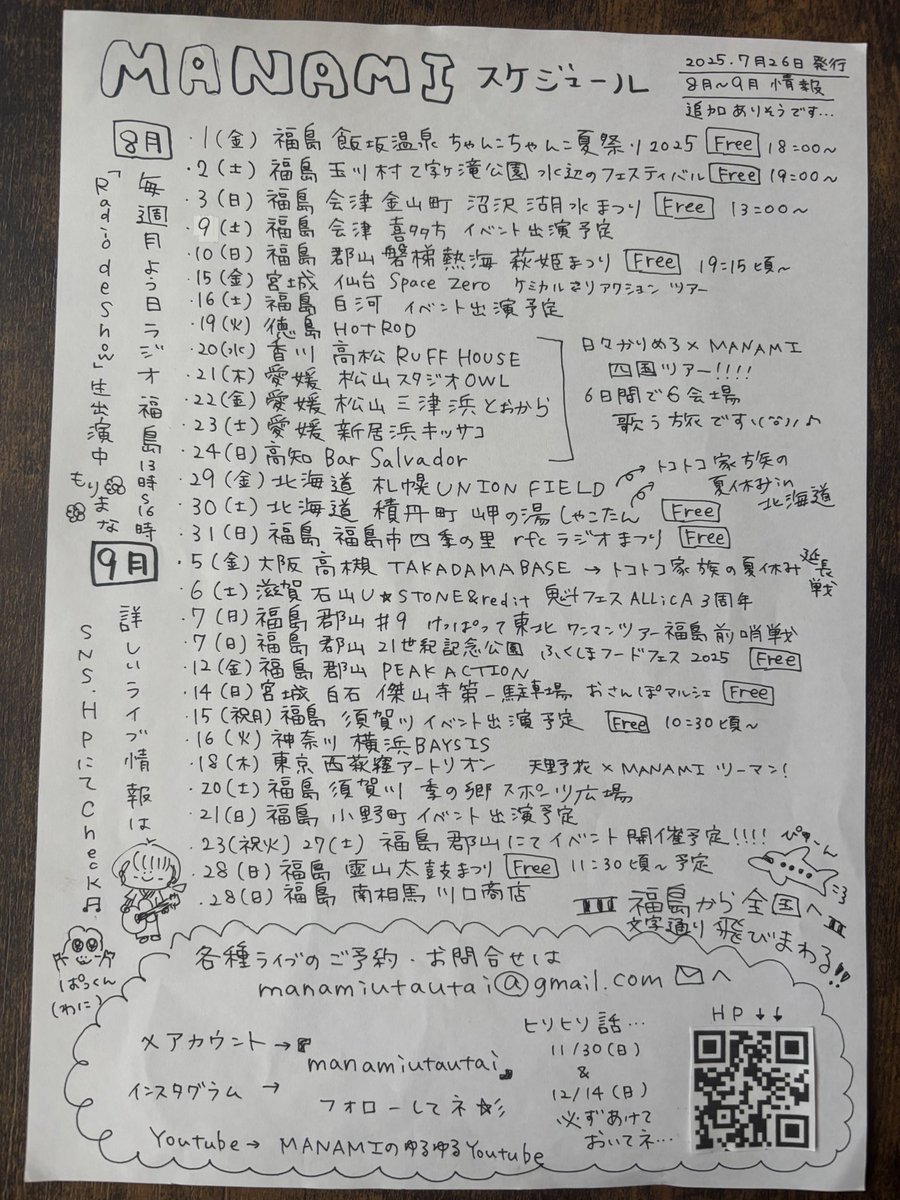 MANAMI スケジュール
2025.7月26日 発行
8月～9月 情報
追加ありそうです…
8月
・1(金) 福島 飯坂温泉 ちゃんこちゃんこ夏祭り2025 Free 18:00～
・2(土) 福島 玉川村 乙字ヶ滝公園 水辺のフェスティバル Free 19:00～
・3(日) 福島 会津 金山町 沼沢湖水まつり Free 13:00～
・9(土) 福島 会津 喜多方 イベント出演予定
・10(日) 福島 郡山 磐梯熱海 萩姫まつり Free 19:15頃～
・15(金) 宮城 仙台 Space Zero ケミカルきりアクション ツアー
・16(土) 福島 白河 イベント出演予定
・19(火) 徳島 HOTROD
・20(水) 香川 高松 RUFF HOUSE
・21(木) 愛媛 松山スタジオOWL
・22(金) 愛媛 松山 三津浜 とおから
・23(土) 愛媛 新居浜キッサコ
・24(日) 高知 Bar Salvador
日々かりめろ×MANAMI
四国ツアー!!!!
6日間で6会場
歌う旅です
・29(金) 北海道 札幌 UNION FIELD
・30(土) 北海道 積丹町 岬の湯しゃこたん Free
トコトコ家族の
夏休みin
北海道
・31(日) 福島 福島市四季の里 rfcラジオまつり Free
毎週月よう日ラジオ福島13時～16時
「Radio de Show」生出演中 もりまな
9月
・5(金) 大阪 高槻 TAKADAMABASE → トコトコ家族の夏休み 延長戦
・6(土) 滋賀 石山U☆STONE&redit 魁フェスALLiCA 3周年
・7(日) 福島 郡山 #9 けっぱって東北 ワンマンツアー福島前哨戦
・7(日) 福島 郡山 21世紀記念公園 ふくしまフードフェス 2025 Free
・12(金) 福島 郡山 PEAK ACTION
・14(日) 宮城 白石 傑山寺第一駐車場 おさんぽマルシェ Free
・15(祝月) 福島 須賀川 イベント出演予定 Free 10:30頃～
・16(火) 神奈川 横浜BAYSIS
・18(木) 東京 西荻窪アートリオン 天野花×MANAMI ツーマン!
・20(土) 福島 須賀川 季の郷 スポーツ広場
・21(日) 福島 小野町 イベント出演予定
・23(祝火) 27(土) 福島 郡山にてイベント開催予定!!!!
・28(日) 福島 霊山太鼓まつり Free 11:30頃～予定
・28(日) 福島 南相馬 川口商店
詳しいライブ情報は
SNS・HPにてCheck♫
ぴゅーん
福島から全国へ
文字通り飛びまわる!!
ぱっくん
(わに)
各種ライブのご予約・お問合せは
manamiutautai@gmail.com へ
Xアカウント→
インスタグラム →
「manamiutautai」
フォローしてネ☆彡
Youtube→ MANAMIのゆるゆるYoutube
ヒソヒソ話…
11/30(日)
&
12/14(日)
必ずあけて
おいてネ…
HP↓↓